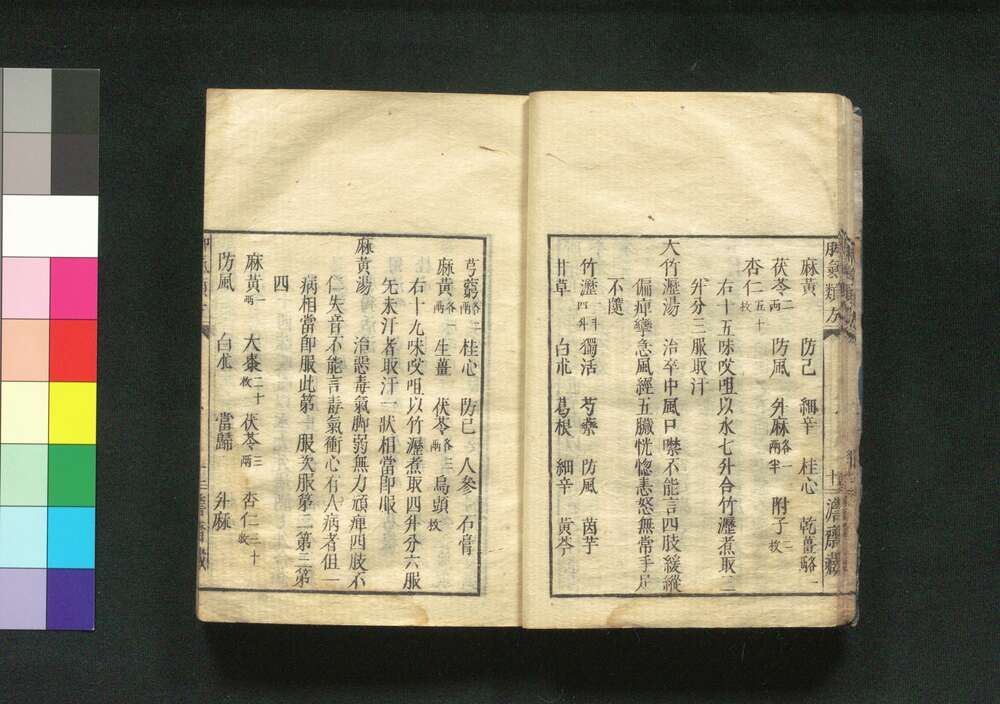 脚氣類方 十 澹齋藏
麻黃 防己 細辛 桂心 乾薑
茯苓二兩 防風 升麻各一兩半 附子二枚
杏仁五十枚
右十五味㕮咀以水七升合竹瀝煮取二
升分三服取汗
大竹瀝湯 治卒中風口噤不能言四肢緩縱
偏痺攣急風經五臟恍惚恚怒無常手足
不隨
竹瀝一斗四升 獨活 芍藥 防風 茵芋
甘草 白朮 葛根 細辛 黃芩
芎藭各二兩 桂心 防己 人參 石膏
麻黃各一兩 生薑 茯苓各三兩 烏頭一枚
右十九味㕮咀以竹瀝煮取四升分六服
先未汗者取汗一狀相當即服
麻黃湯 治惡毒氣脚弱無力頑痺四肢不
仁失音不能言毒氣衝心有人病者但一
病相當即服此第一服次服第二第三第
四
麻黃一兩 大棗二十枚 茯苓三兩 杏仁三十枚
防風 白朮 當歸 升麻